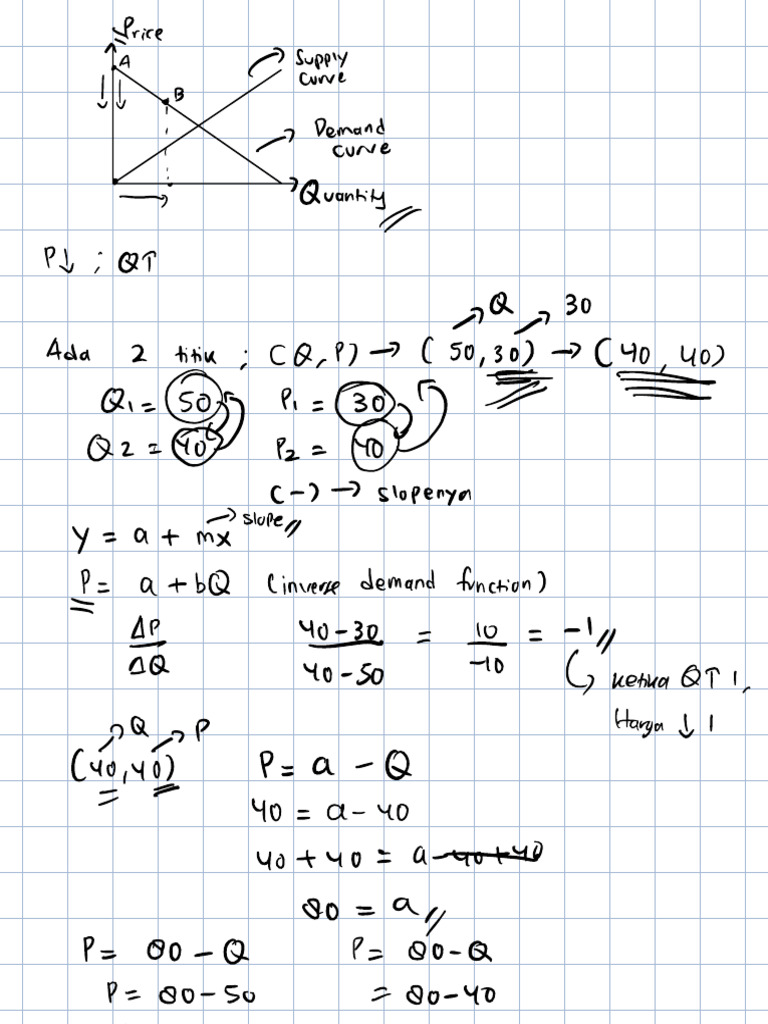 Price
A
Supply
curve
B
Demand
curve
Quantity
P↓ ; Q↑
Q 30
Ada 2 titik ; (Q, P) → (50, 30) → (40, 40)
Q1 = 50 P1 = 30
Q2 = 40 P2 = 40
(-) → slopenya
y = a + mx → slope
P = a + bQ (inverse demand function)
ΔP/ΔQ (40-30)/(40-50) = 10/-10 = -1
ketika Q↑ 1,
Harga ↓ 1
Q P
(40, 40) P = a - Q
40 = a - 40
40 + 40 = a - 40 + 40
80 = a
P = 80 - Q P = 80 - Q
P = 80 - 50 = 80 - 40